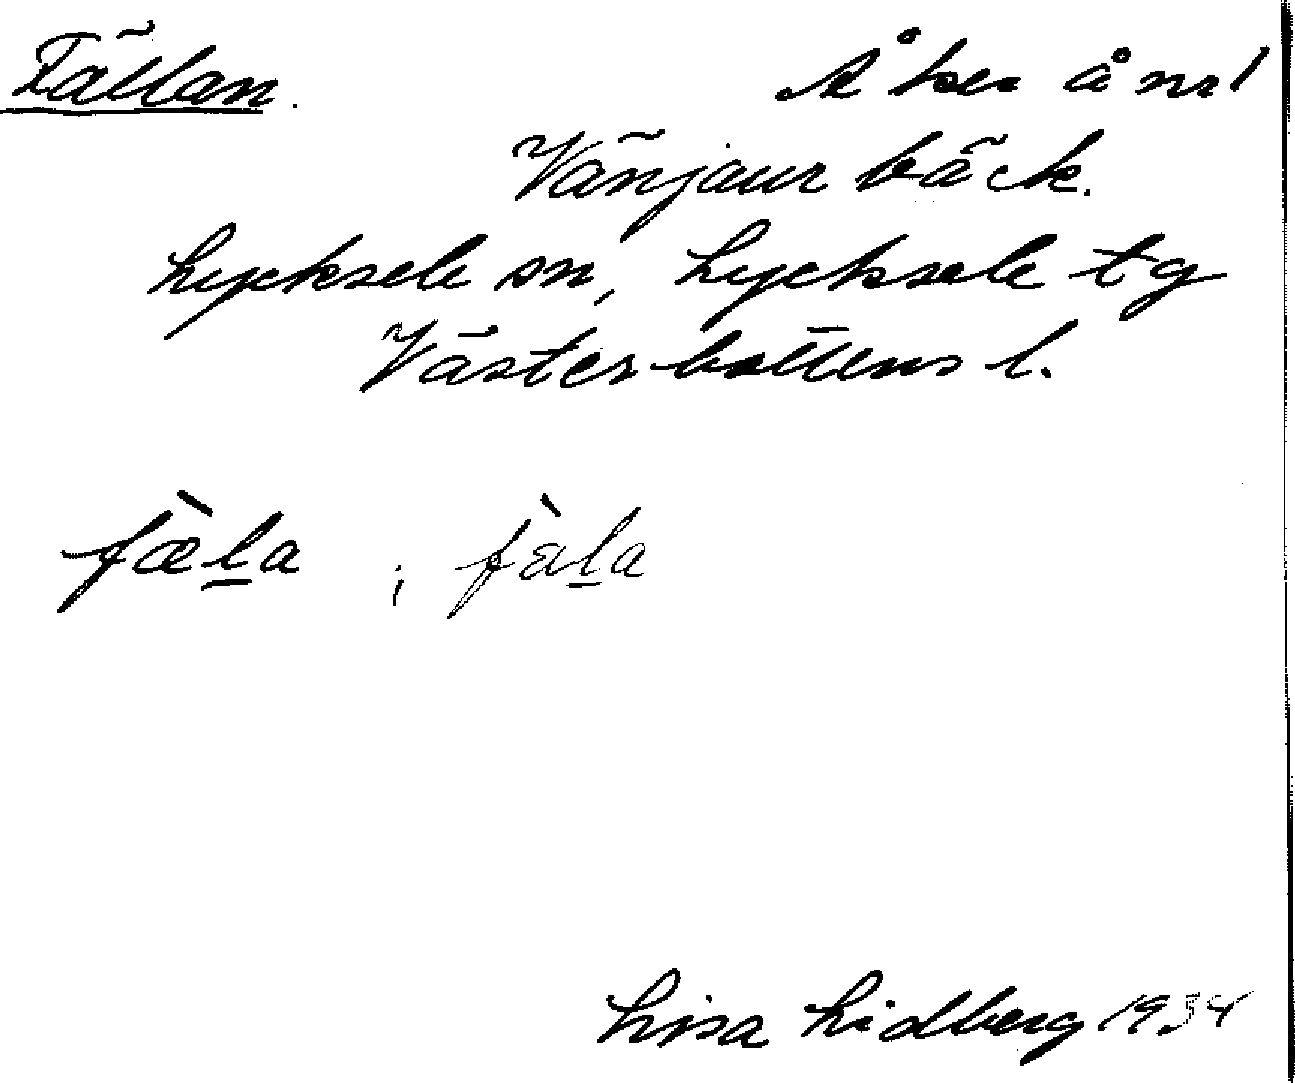 Fällan. Åker å nr 1
Vänjaur bäck.
Lycksele sn, Lycksele tg
Västerbottens l.
fæ̀l̲a ; fàl̲a
Lisa Lidberg 1934